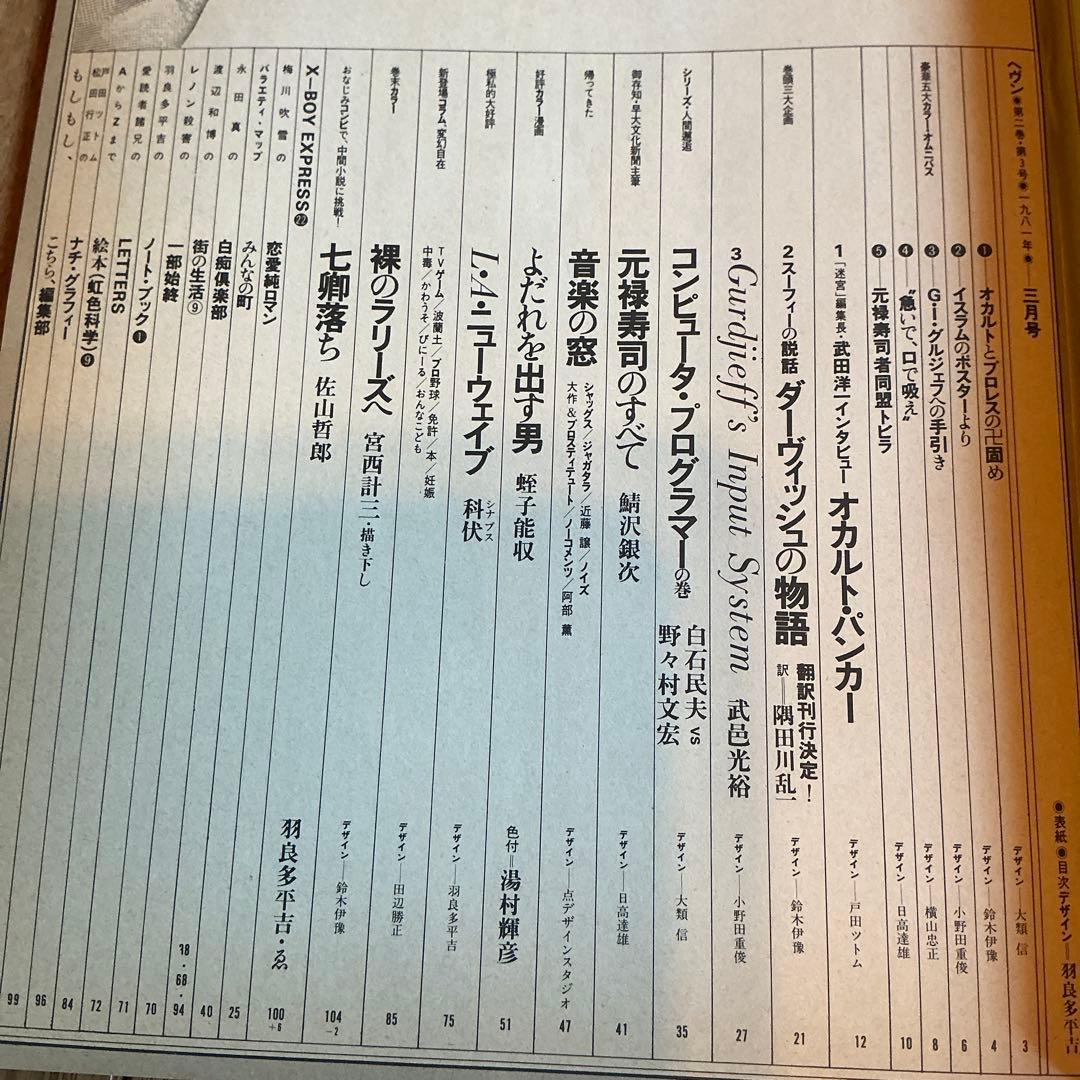 ●表紙●目次デザイン―羽良多平吉
ヘヴン●第二巻・第3号●一九八一年●三月号
豪華五大カラー・オムニバス
❶オカルトとプロレスの卍固め デザイン―大類 信 3
❷イスラムのポスターより 鈴木伊豫 4
❸G・I・グルジェフへの手引き 小野田重俊 6
❹“急いで、口で吸え” 横山忠正 8
❺元禄寿司者同盟トビラ 日高達雄 10
巻頭三大企画
1「迷宮」編集長・武田洋一インタビュー オカルト・パンカー デザイン―戸田ツトム 12
2スーフィーの説話 ダーヴィッシュの物語 翻訳刊行決定! 訳＝隅田川乱一 デザイン―鈴木伊豫 21
3 Gurdjieff's Input System 武邑光裕 デザイン―小野田重俊 27
シリーズ・人間邂逅
コンピュータ・プログラマーの巻 白石民夫 vs 野々村文宏 デザイン―大類 信 35
御存知・早大文化新聞主筆
元禄寿司のすべて 鯖沢銀次 デザイン―日高達雄 41
帰ってきた
音楽の窓 シャッグス/ジャガタラ/近藤 譲/ノイズ
大作&プロスティテュート/ノーコメンツ/阿部 薫 デザイン―点デザインスタジオ 47
好評カラー漫画
よだれを出す男 蛭子能収 色付＝湯村輝彦 51
極私的大好評
L・A・ニューウェイブ 科伏 シナプス
新登場コラム、変幻自在
TVゲーム/波蘭土/プロ野球/免許/本/妊娠
中毒/かわうそ/びにーる/おんなこども デザイン―羽良多平吉 75
巻末カラー
裸のラリーズへ 宮西計三・描き下し デザイン―田辺勝正 85
おなじみコンビで、中間小説に挑戦!
七卿落ち 佐山哲郎 デザイン―鈴木伊豫 104-2
X-BOY EXPRESS㉒
梅川吹雪の 恋愛純ロマン 羽良多平吉・ゑ 100+6
バラエティ・マップ みんなの町 25
永田真の 白痴倶楽部 40
渡辺和博の 街の生活⑨
レノン殺害の 一部始終 70
羽良多平吉の ノート・ブック❶ 71
愛読者諸兄の LETTERS 72
AからZまで 絵本(虹色科学)❾ 84
戸田ツトム 松田行正の ナチ・グラフィー 96
もしもし、 こちら、編集部 99